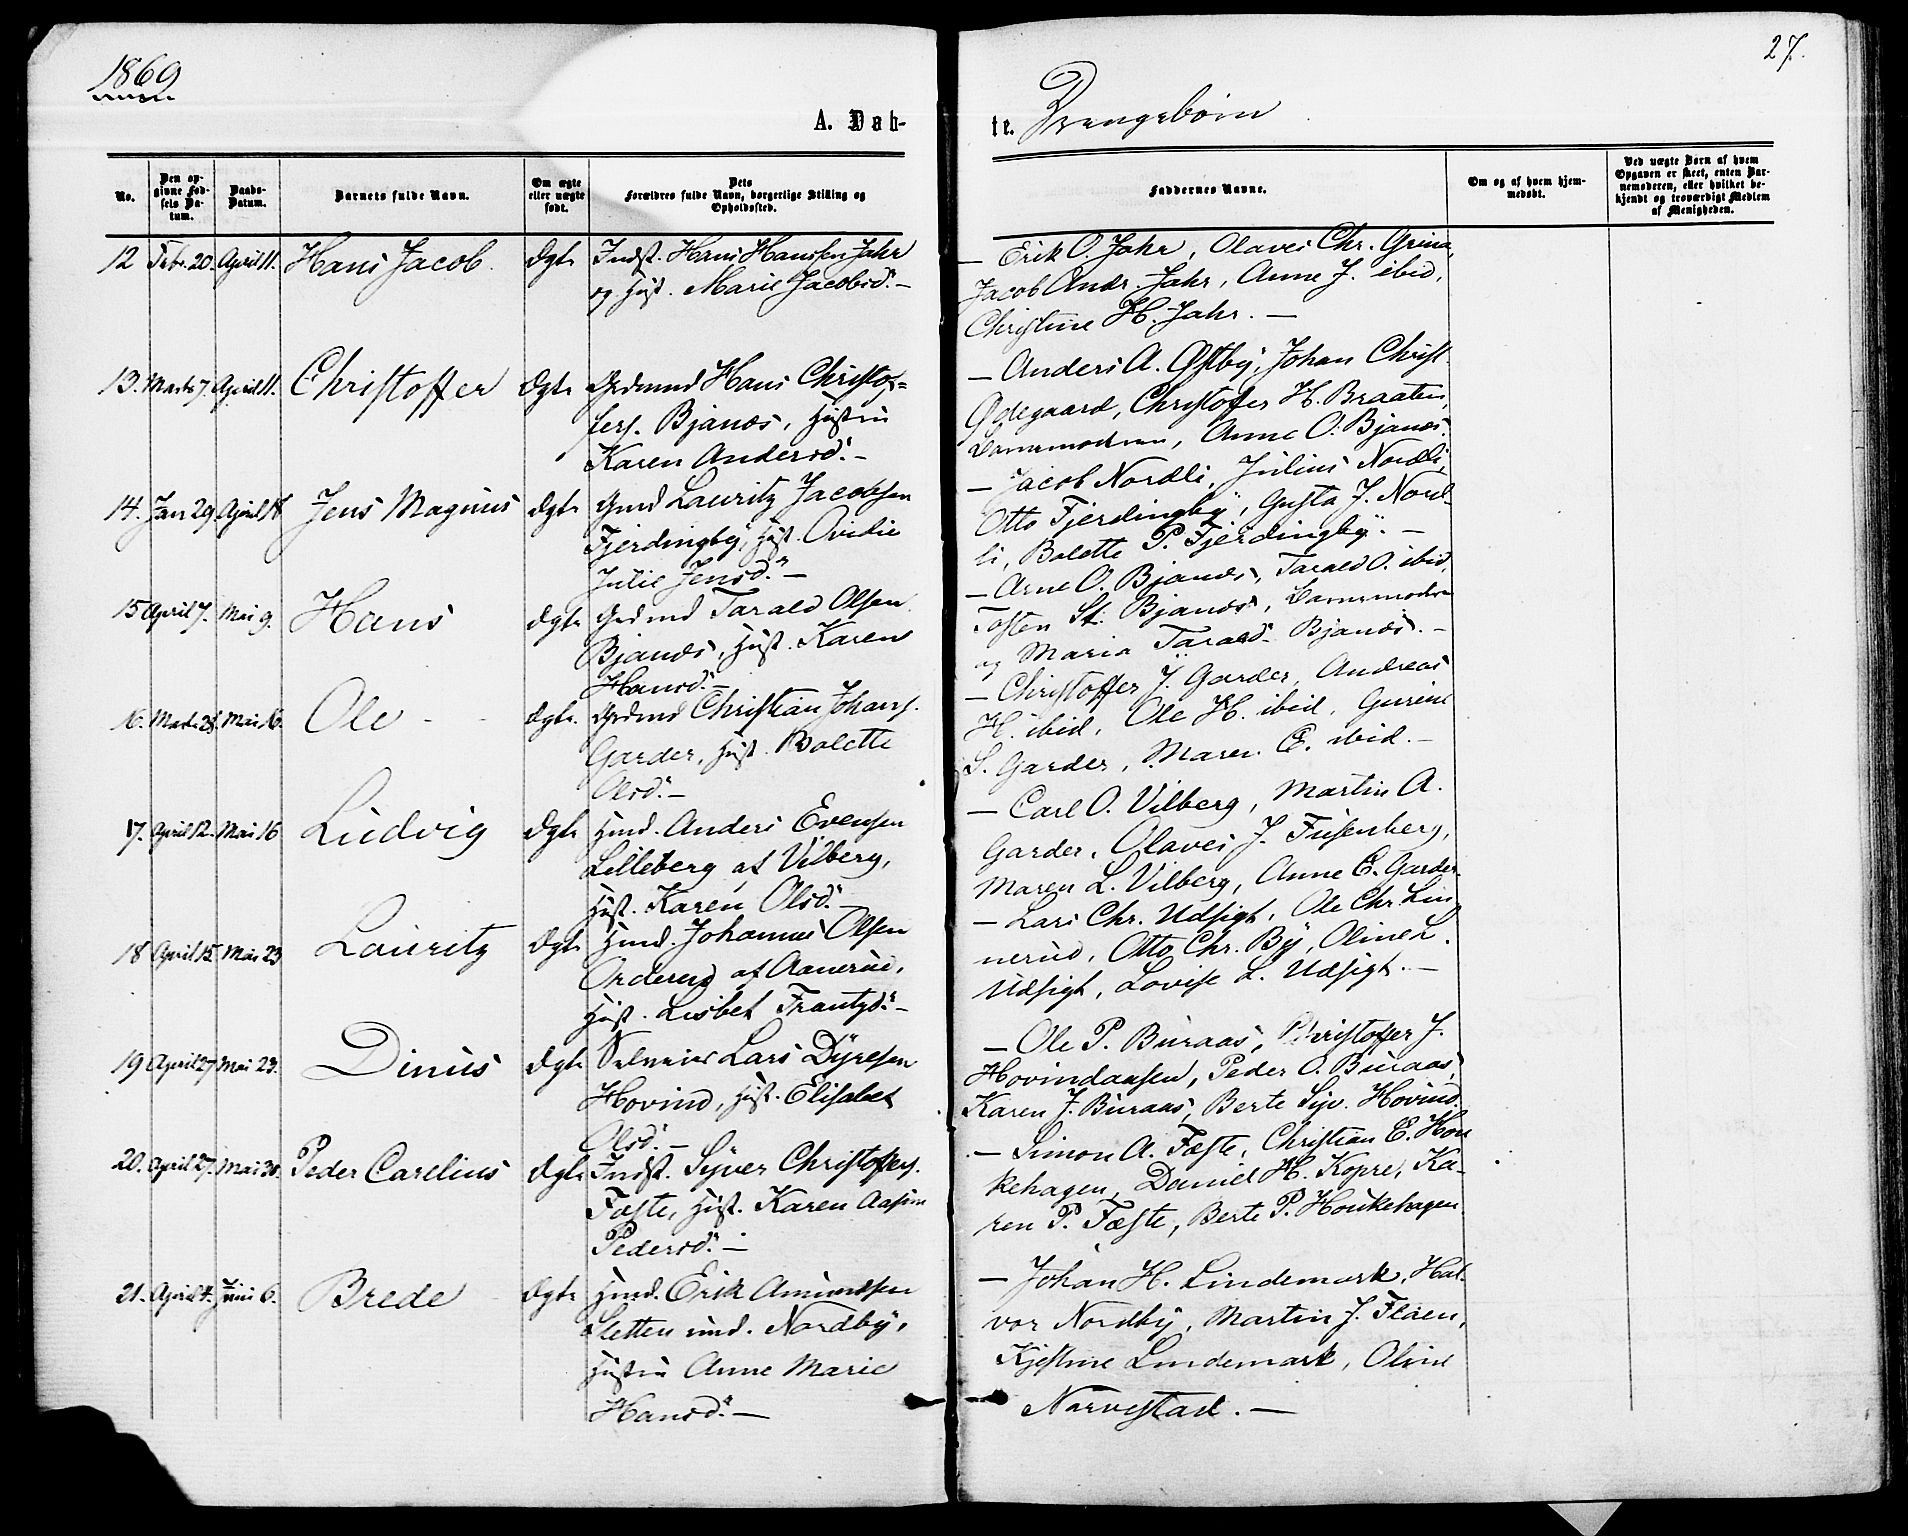 1869
27.
A. Døb-
te. Drengebörn
No.
Den op-
givne Fød-
sels Da-
tum.
Daabs-
Datum.
Barnets fulde Navn.
Om ægte
eller uægte
født.
Dets
Forældres fulde Navn, borgerlige Stilling og
Opholdssted.
Faddernes Navne.
Om og af hvem hjem-
medøbt.
Ved uægte Børn af hvem
Opgaven er skeet, enten Bar-
nemoderen, eller hvilket be-
kjendt og troværdigt Medlem
af Menigheden.
12 Febr. 20. April 11. Hans Jacob. Ægte Indst. Hans Hanssen Jahr
og Hust. Marie Jacobsd. –
– Erik O. Jahr, Olaves Chr. Grina,
Jacob Andr. Jahr, Anne J. ibid,
Christine H. Jahr. –
13. Marts 7. April 11. Christoffer Ægte Grdmnd Hans Christof=
fers. Bjanæs, Hustru
Karen Andersd. –
– Anders A. Østby, Johan Christ.
Ødegaard, Christoffer H. Braaten,
Barnemoderen, Anne O. Bjanæs.
14. Jan 29. April 18 Jens Magnus Ægte Gmd Lauritz Jacobsen
Fjerdingby, Hust. Ovidie
Julie Jensd. –
– Jacob Nordli, Julius Nordli,
Otto Fjerdingby, Gusta J. Nord-
li, Bolette P. Fjerdingby. –
15 April 7. Mai 9. Hans Ægte Grdmnd Tarald Olsen
Bjanæs, Hust. Karen
Hansd. –
– Arne O. Bjanæs, Tarald O. ibid,
Tosten St. Bjanæs, Barnemodren
og Maria Taralds. Bjanæs. –
16. Marts 28. Mai 16. Ole - - Ægte. Grdmnd Christian Johans.
Garder, Hust. Bolette
Olsd. –
– Christoffer J. Garder, Andreas
H. ibid, Ole H. ibid, Gurine
S. Garder, Maren E. ibid. –
17. April 12. Mai 16 Ludvig Ægte Hmd. Anders Evensen
Lilleberg af Vilberg,
Hust. Karen Olsd. –
– Carl O. Vilberg, Martin A.
Garder, Olaves J. Fusenberg,
Maren L. Vilberg, Anne E. Garder.
18 April 15 Mai 23 Lauritz Ægte Hmd. Johannes Olsen
Orderud af Aanerud,
Hust. Lisbet Frantzd. –
– Lars Chr. Udsigt, Ole Chr. Lin
nerud, Otto Chr. By, Oline L.
Udsigt, Lovise L. Udsigt. –
19 April 27 Mai 23. Dinus Ægte Selveier Lars Dyresen
Hovind, Hust. Elisabet
Olsd. –
– Ole P. Buraas, Christoffer J.
Hovindaasen, Peder O. Buraas,
Karen J. Buraas, Berte Syv. Hovind.
20. April 27. Mai 30. Peder Carelius Ægte Indst. Syver Christoffers.
Fæste, Hust. Karen Aasine
Pedersd. –
– Simon A. Fæste, Christian E. Hou
kehagen, Daniel H. Kopre, Ka-
ren P. Fæste, Berte P. Houkehagen.
21. April 4. Juni 6. Brede Ægte Hmd. Erik Amundsen
Sletten und. Nordby,
Hustru Anne Marie
Hansd. –
– Johan H. Lindemark, Hal-
vor Nordby, Martin J. Flaen,
Kjestine Lindemark, Oline
Narvestad. –